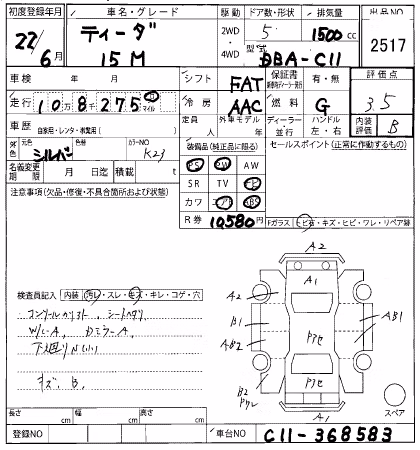 初度登録年月 車名・グレード 駆動 ドア数・形状 排気量 出品NO
22/6月 ティーダ 15M 2WD・4WD 5 1500cc 2517
型式 DBA-C11
車検 年 月 シフト FAT 保証書 有・無 評価点
走行 10万8千275 キロ マイル 冷房 AAC 燃料 G 3.5
車歴 自家用・レンタ・教習用( ) 定員 人 外車モデル 年 ディーラー・並行 ハンドル 左・右 内装評価 B
外色 元色 シルバー 色替 カラーNO K23 装備品(純正品に限る) セールスポイント(正常に作動するもの)
名義変更期限 月 日迄 積載 t PS PW AW
注意事項(欠品・修復・不具合箇所および状態) SR TV ナビ
カワ エアB ABS
R券 10580円 Fガラス ヒビ有・キズ・ヒビ・ワレ・リペア跡
A2
A1
A2
検査員記入 内装 汚レ・スレ・キズ・キレ・コゲ・穴
B1 AB1
W/L-A、Dミラー-A AB2
下廻りN(小)
キズ、B、 B2
A1
スペア
長さ cm 幅 cm 高さ cm
登録NO 車台NO C11-368583